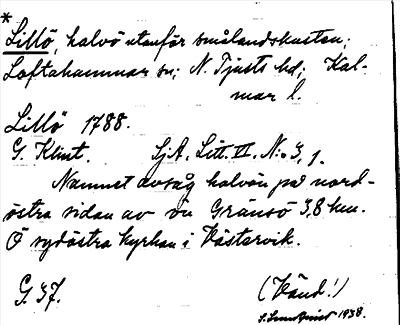 *
Lillö, halvö utanför smålandskusten;
Loftahammar sn; N. Tjusts hd; Kal-
mar l.
Lillö 1788.
G. Klint. SjA. Litt. VI. N:o 3, 1.
Namnet avsåg halvön på nord-
östra sidan av ön Gränsö 3,8 km.
O sydöstra kyrkan i Västervik.
G. 37. (Vänd!)
1938.